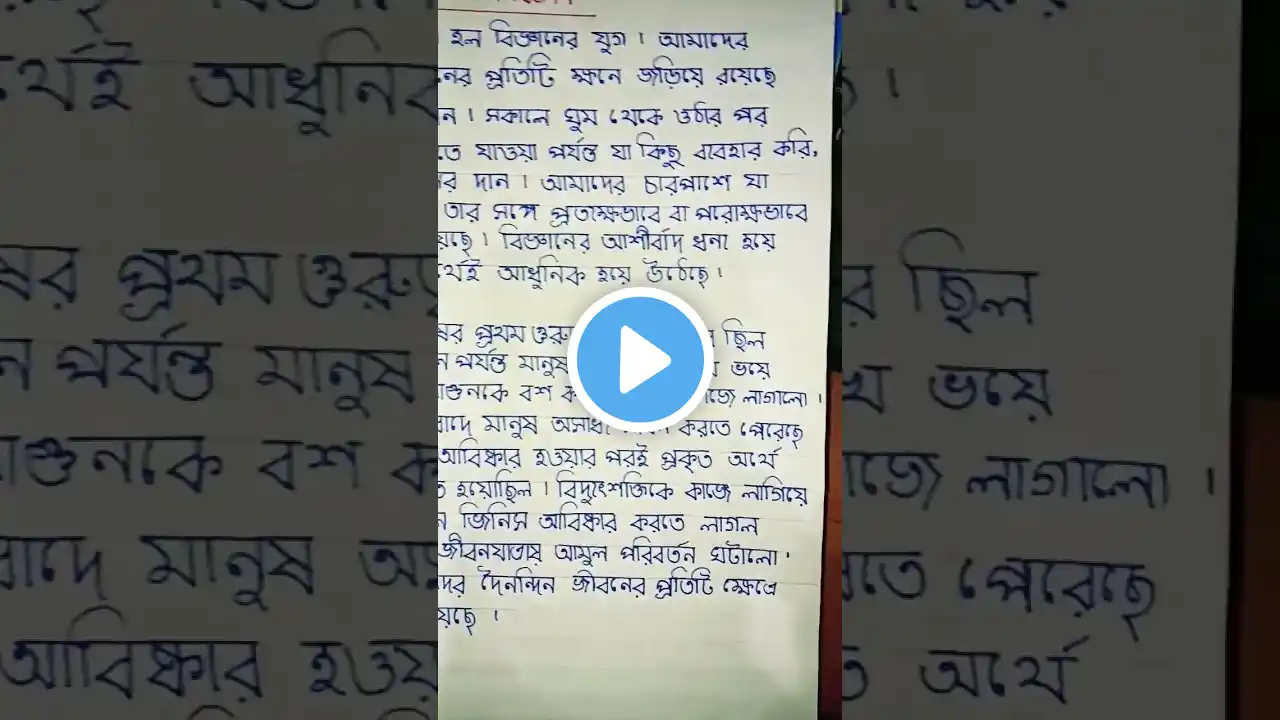 হল বিজ্ঞানের যুগ । আমাদের
নের প্রতিটি ক্ষনে জড়িয়ে রয়েছে
ন । সকালে ঘুম থেকে ওঠার পর
তে যাওয়া পর্যন্ত যা কিছু ব্যবহার করি,
র দান । আমাদের চারপাশে যা
তার সঙ্গে প্রত্যক্ষভাবে বা পরোক্ষভাবে
য়েছে । বিজ্ঞানের আশীর্বাদ ধন্য হয়ে
র্থেই আধুনিক হয়ে উঠেছে ।
ষের প্রথম গুরু ছিল
ন পর্যন্ত মানুষ ভয়ে
গুনকে বশ ক জে লাগালো ।
বাদে মানুষ অসাধ্য করতে পেরেছে
আবিষ্কার হওয়ার পরই প্রকৃত অর্থে
ত হয়েছিল । বিদ্যুৎশক্তিকে কাজে লাগিয়ে
ন জিনিস আবিষ্কার করতে লাগল
জীবনযাত্রায় আমূল পরিবর্তন ঘটালো ।
দের দৈনন্দিন জীবনের প্রতিটি ক্ষেত্রে
য়েছে ।